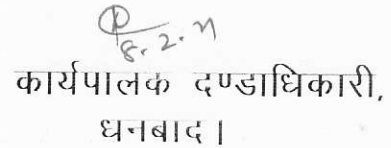 8.2.21
कार्यपालक दण्डाधिकारी,
धनबाद।